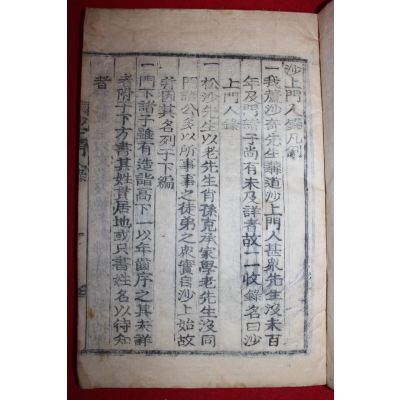 沙上門人錄凡例
一我蘆沙奇先生講道沙上門人甚衆先生沒未百
年及門諸子尚有未及詳者故一一收錄名曰沙
上門人錄
一松沙先生以老先生肖孫克承家學老先生沒同
門諸公多以所事事之徒弟之衆實自沙上始故
者因其名列于下編
一門下諸子雖有造詣高下一以年齒序之其未詳
者附于下方書其姓貫居地或只書姓名以待知
者